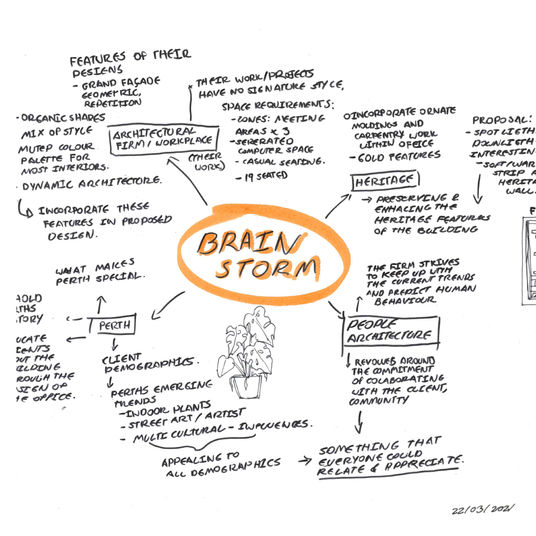 FEATURES OF THEIR
DESIGNS
- GRAND FAÇADE
GEOMETRIC,
REPETITION
- ORGANIC SHAPES
MIX OF STYLE
MUTED COLOUR
PALETTE FOR
MOST INTERIORS.
- DYNAMIC ARCHITECTURE.
INCORPORATE THESE
FEATURES IN PROPOSED
DESIGN.
ARCHITECTURAL
FIRM / WORKPLACE
(THEIR
WORK)
THEIR WORK/PROJECTS
HAVE NO SIGNATURE STYLE,
SPACE REQUIREMENTS:
- ZONES: MEETING
AREAS x 3
- SEPERATED
COMPUTER SPACE
- CASUAL SEATING.
- 19 SEATED
INCORPORATE ORNATE
MOLDINGS AND
CARPENTRY WORK
WITHIN OFFICE
- GOLD FEATURES
HERITAGE
PRESERVING &
ENHACING THE
HERITAGE FEATURES
OF THE BUILDING
PROPOSAL:
- SPOTLIGTH
DOWNLIGTH
INTERESTIN
- SOFT/WAR
STRIP A
HERITA
WALL.
BRAIN
STORM
WHAT MAKES
PERTH SPECIAL.
PERTH
HOLD
THS
TORY
UCATE
IENTS
OUT THE
ILDING
ROUGH THE
SIGN OF
E OFFICE.
CLIENT
DEMOGRAPHICS.
PERTHS EMERGING
TRENDS
- INDOOR PLANTS
- STREET ART / ARTIST
- MULTI CULTURAL - INFLUENCES.
APPEALING TO
ALL DEMOGRAPHICS
THE FIRM STRIVES
TO KEEP UP WITH
THE CURRENT TRENDS
AND PREDICT HUMAN
BEHAVIOUR
PEOPLE
ARCHITECTURE
REVOLVES AROUND
THE COMMITMENT
OF COLABORATING
WITH THE CLIENT,
COMMUNITY
SOMETHING THAT
EVERYONE COULD
RELATE & APPRECIATE.
22/03/2021